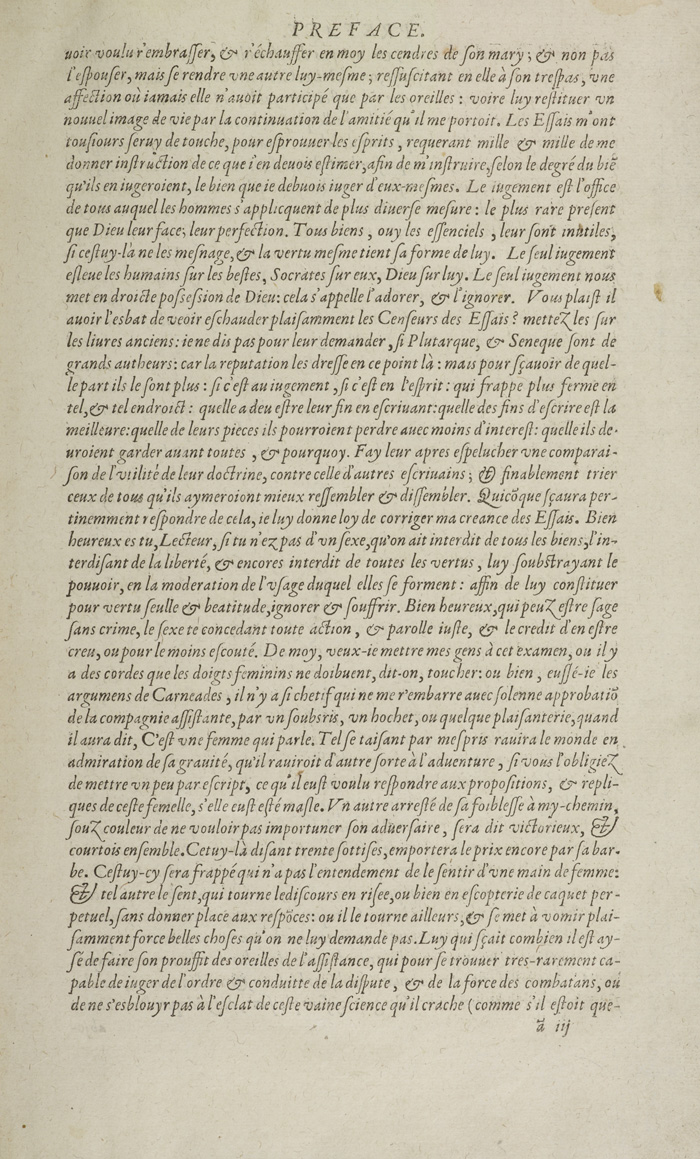 PREFACE.
uoir voulu r'embraſſer, & r'échauffer en moy les cendres de ſon mary; & non pas
l'eſpouſer, mais ſe rendre vne autre luy-meſme; reſſuſcitant en elle à ſon treſpas, vne
affection où iamais elle n'auoit participé que par les oreilles: voire luy reſtituer vn
nouuel image de vie par la continuation de l'amitié qu'il me portoit. Les Eſſais m'ont
touſiours ſeruy de touche, pour eſprouuer les eſprits, requerant mille & mille de me
donner inſtruction de ce que i'en deuois eſtimer, afin de m'inſtruire, ſelon le degré du biē
qu'ils en iugeroient, le bien que ie debuois iuger d'eux-meſmes. Le iugement eſt l'office
de tous auquel les hommes s'applicquent de plus diuerſe meſure: le plus rare preſent
que Dieu leur face; leur perfection. Tous biens, ouy les eſſenciels, leur ſont inutiles,
ſi ceſtuy-là ne les meſnage, & la vertu meſme tient ſa forme de luy. Le ſeul iugement
eſleue les humains ſur les beſtes, Socrates ſur eux, Dieu ſur luy. Le ſeul iugement nous
met en droicte poſseſsion de Dieu: cela s'appelle l'adorer, & l'ignorer. Vous plaiſt il
auoir l'esbat de veoir eſchauder plaiſamment les Cenſeurs des Eſſais? mettez les ſur
les liures anciens: ie ne dis pas pour leur demander, ſi Plutarque, & Seneque ſont de
grands autheurs: car la reputation les dreſſe en ce point là: mais pour ſçauoir de quel-
le part ils le ſont plus: ſi c'eſt au iugement, ſi c'eſt en l'eſprit: qui frappe plus ferme en
tel, & tel endroict: quelle a deu eſtre leur fin en eſcriuant: quelle des fins d'eſcrire eſt la
meilleure: quelle de leurs pieces ils pourroient perdre auec moins d'intereſt: quelle ils de-
uroient garder auant toutes, & pourquoy. Fay leur apres eſpelucher vne comparai-
ſon de l'vtilité de leur doctrine, contre celle d'autres eſcriuains; & finablement trier
ceux de tous qu'ils aymeroiont mieux reſſembler & diſſembler. Quicōque ſçaura per-
tinemment reſpondre de cela, ie luy donne loy de corriger ma creance des Eſſais. Bien
heureux es tu, Lecteur, ſi tu n'ez pas d'vn ſexe, qu'on ait interdit de tous les biens, l'in-
terdiſant de la liberté, & encores interdit de toutes les vertus, luy ſoubſtrayant le
pouuoir, en la moderation de l'vſage duquel elles ſe forment: affin de luy conſtituer
pour vertu ſeulle & beatitude, ignorer & ſouffrir. Bien heureux, qui peuz eſtre ſage
ſans crime, le ſexe te concedant toute action, & parolle iuſte, & le credit d'en eſtre
creu, ou pour le moins eſcouté. De moy, veux-ie mettre mes gens à cet examen, ou il y
a des cordes que les doigts feminins ne doibuent, dit-on, toucher: ou bien, euſſé-ie les
argumens de Carneades, il n'y a ſi chetif qui ne me r'embarre auec ſolenne approbatiō
de la compagnie aſſiſtante, par vn ſoubsris, vn hochet, ou quelque plaiſanterie, quand
il aura dit, C'eſt vne femme qui parle. Tel ſe taiſant par meſpris rauira le monde en
admiration de ſa grauité, qu'il rauiroit d'autre ſorte à l'aduenture, ſi vous l'obligiez
de mettre vn peu par eſcript, ce qu'il euſt voulu reſpondre aux propoſitions, & repli-
ques de ceſte femelle, s'elle euſt eſté maſle. Vn autre arreſté de ſa foibleſſe à my-chemin,
ſouz couleur de ne vouloir pas importuner ſon aduerſaire, ſera dit victorieux, &
courtois enſemble. Cetuy-là diſant trente ſottiſes, emportera le prix encore par ſa bar-
be. Ceſtuy-cy ſera frappé qui n'a pas l'entendement de le ſentir d'vne main de femme:
& tel autre le ſent, qui tourne le diſcours en riſee, ou bien en eſcopterie de caquet per-
petuel, ſans donner place aux reſpōces: ou il le tourne ailleurs, & ſe met à vomir plai-
ſamment force belles choſes qu'on ne luy demande pas. Luy qui ſçait combien il eſt ay-
ſé de faire ſon prouffit des oreilles de l'aſſiſtance, qui pour ſe trouuer tres-rarement ca-
pable de iuger de l'ordre & conduitte de la diſpute, & de la force des combatans, ou
de ne s'esblouyr pas à l'eſclat de ceſte vaine ſcience qu'il crache (comme s'il eſtoit que-
ā iij